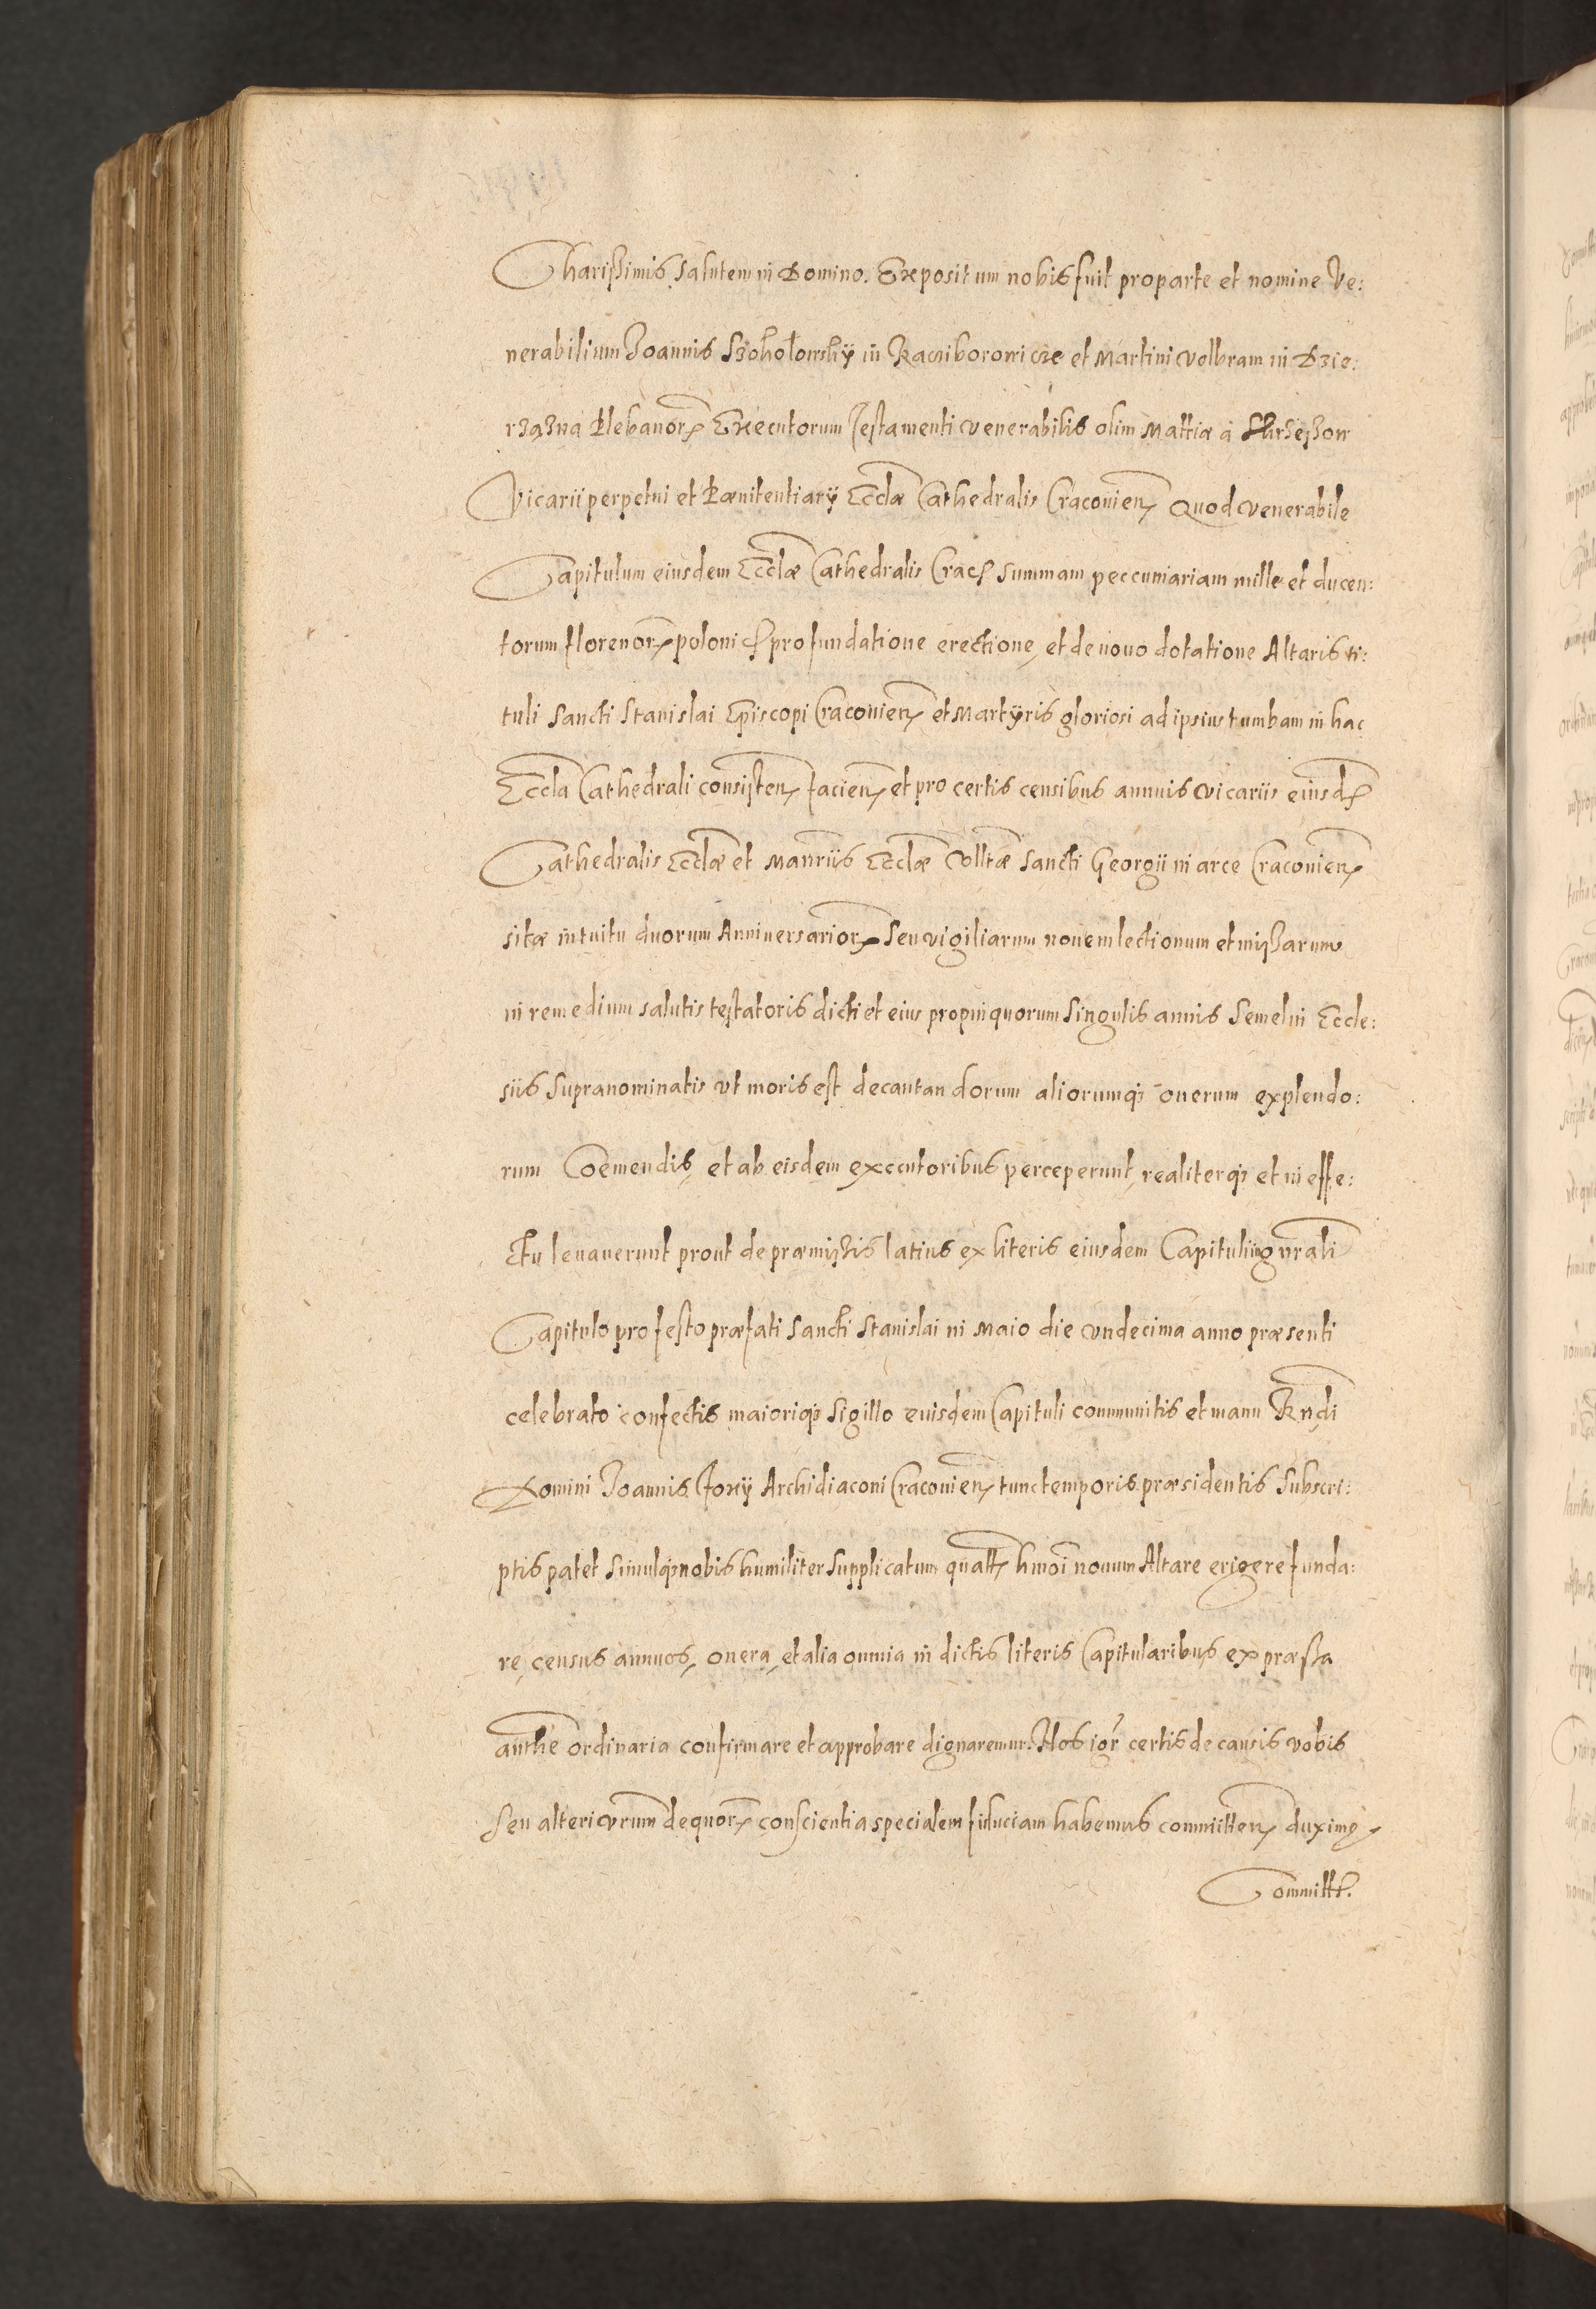 Charissimis Salutem in Domino. Expositum nobis fuit pro parte et nomine Ve:
nerabilium Joannis Szokołowskÿ in Raciborowicze et Martini Volbram in Dzie:
rzązna Plebanor, Executorum Testamenti venerabilis olim Mattiæ à
Vicarii perpetui et Pœnitentiarÿ Ecclæ Cathedralis Cracovien, Quod venerabile
Capitulum eiusdem Ecclæ Cathedralis Crac, summam peccuniariam mille et ducen:
torum florenor, polonic, pro fundatione erectione, et de novo dotatione Altaris ti:
tuli Sancti Stanislai Episcopi Cracovien, et Martÿris gloriosi ad ipsius tumbam in hac
Eccla Cathedrali consisten, facien, et pro certis censibus annuis vicariis eiusd,
Cathedralis Ecclæ et Manriis Ecclæ Colltæ Sancti Georgii in arce Cracovien,
sitæ intuitu duorum Anniversarior, Seu vigiliarum novem lectionum et missarum
in remedium salutis testatoris dicti et eius propinquorum Singulis annis Semel in Eccle:
siis Supranominatis vt moris est decantandorum aliorumq, onerum explendo:
rum Coemendis, et ab eisdem executoribus perceperunt, realiterq, et in effe:
ctu levaverunt prout de præmissis latius ex literis eiusdem Capituli in gnrali
Capitulo pro festo præfati Sancti Stanislai in Maio die vndecima anno præsenti
celebrato confectis maioriq, Sigillo euisdem Capituli communitis et manu Rndi
Domini Joannis Foxÿ Archidiaconi Cracovien, tunc temporis præsidentis Subscri:
ptis patet Simulq, nobis humiliter Supplicatum quatt, hmoi novum Altare erigere funda:
re, census annuos, onera, et alia omnia in dictis literis Capitularibus expræssa
authe ordinaria confirmare et approbare dignaremur. Nos igr certis de causis vobis
seu alteri vrum de quor, conscientia specialem fiduciam habemus committen, duxim9
Committ.